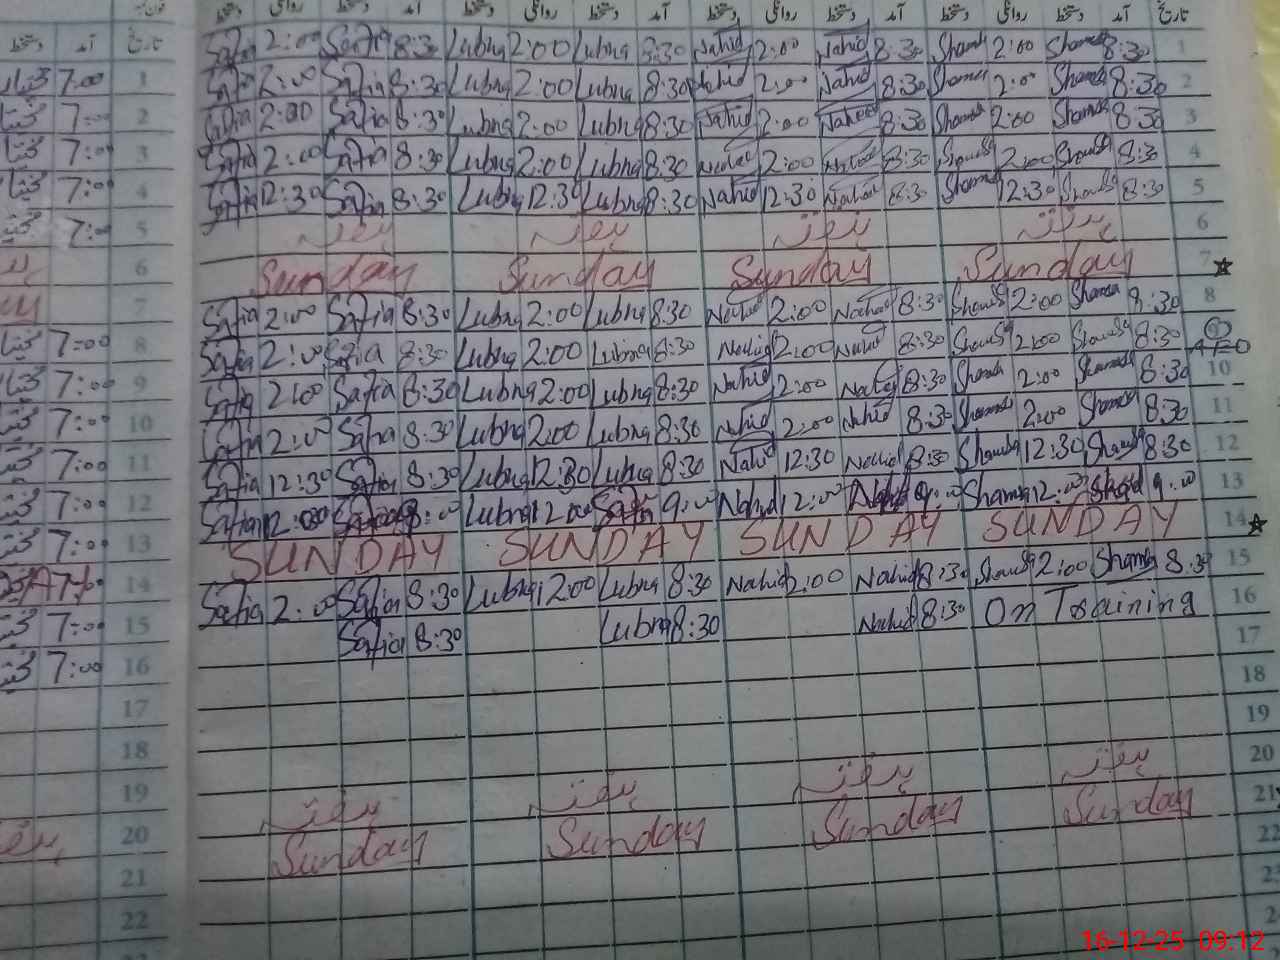 دستخط روانگی دستخط آمد دستخط روانگی دستخط آمد دستخط روانگی دستخط آمد دستخط روانگی دستخط آمد تاریخ
دستخط آمد تاریخ
Safia 2:00 Safia 8:30 Lubna 2:00 Lubna 8:30 Nahid 2:00 Nahid 8:30 Shamsa 2:00 Shamsa 8:30 1
7:00 1
Safia 2:00 Safia 8:30 Lubna 2:00 Lubna 8:30 Nahid 2:00 Nahid 8:30 Shamsa 2:00 Shamsa 8:30 2
7:00 2
Safia 2:00 Safia 8:30 Lubna 2:00 Lubna 8:30 Nahid 2:00 Naheed 8:30 Shamsa 2:00 Shamsa 8:30 3
7:00 3
Safia 2:00 Safia 8:30 Lubna 2:00 Lubna 8:30 2:00 8:30 Shamsa 2:00 Shamsa 8:30 4
7:00 4
Safia 12:30 Safia 8:30 Lubna 12:30 Lubna 8:30 Nahid 12:30 Nahid 8:30 Shamsa 12:30 Shamsa 8:30 5
7:00 5
ہفتہ ہفتہ ہفتہ ہفتہ 6
6
Sunday Sunday Sunday Sunday 7
7
Safia 2:00 Safia 8:30 Lubna 2:00 Lubna 8:30 Nahid 2:00 Nahid 8:30 Shamsa 2:00 Shamsa 8:30 8
7:00 8
Safia 2:00 Safia 8:30 Lubna 2:00 Lubna 8:30 Nahid 2:00 Nahid 8:30 Shamsa 2:00 Shamsa 8:30 9
AEO
7:00 9
Safia 2:00 Safia 8:30 Lubna 2:00 Lubna 8:30 Nahid 2:00 Nahid 8:30 Shamsa 2:00 Shamsa 8:30 10
7:00 10
Safia 2:00 Safia 8:30 Lubna 2:00 Lubna 8:30 Nahid 2:00 Nahid 8:30 Shamsa 2:00 Shamsa 8:30 11
7:00 11
Safia 12:30 Safia 8:30 Lubna 12:30 Lubna 8:30 Nahid 12:30 Nahid 8:30 Shamsa 12:30 Shamsa 8:30 12
7:00 12
Safia 12:00 Lubna 12:00 Safia 9:00 Nahid 12:00 9:00 Shamsa 12:00 9:00 13
7:00 13
SUNDAY SUNDAY SUNDAY SUNDAY 14
14
Safia 2:00 Safia 8:30 Lubna 2:00 Lubna 8:30 Nahid 2:00 Nahid 8:30 Shamsa 2:00 Shamsa 8:30 15
7:00 15
Safia 8:30 Lubna 8:30 Nahid 8:30 On Training 16
7:00 16
17
17
18
18
19
19
ہفتہ ہفتہ ہفتہ ہفتہ 20
ہفتہ 20
Sunday Sunday Sunday Sunday 21
21
22
22
16-12-25 09:12